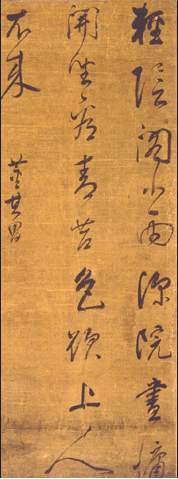 輕陰閣小雨深院晝慵
開坐看青苔色欲上人
衣来
董其昌